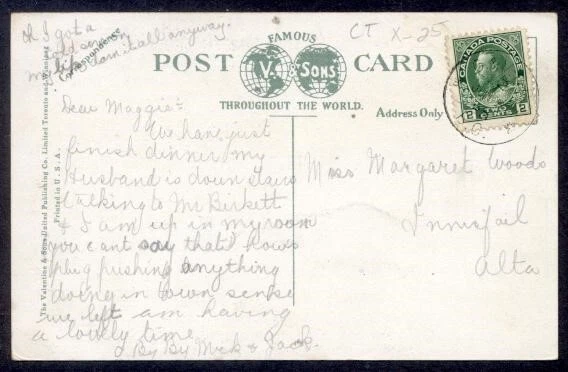 Oh I got a
cold
damit all anyway.
Correspondence
CT X-25
FAMOUS
V. & SONS
POST CARD
THROUGHOUT THE WORLD.
Address Only
CANADA POSTAGE
2 CENTS 2
The Valentine & Sons United Publishing Co. Limited Toronto and Winnipeg
Printed in U.S.A.
Dear Maggie:-
We have just
finish dinner my
Husband is down stairs
talking to Mr Birkett
& I am up in my room
you cant say that hows
plug pushing anything
doing in town sense
we left am having
a lovely time
By By Mick & Jack.
Miss Margaret Woods
Innisfail
Alta